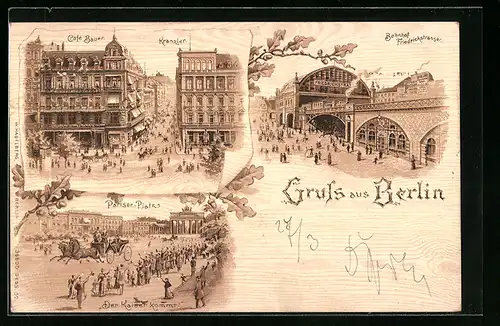 Café Bauer.
Kranzler.
Bahnhof
Friedrichstrasse.
Gruſs aus Berlin
27/3
Pariser-Platz.
"Der Kaiser kommt."